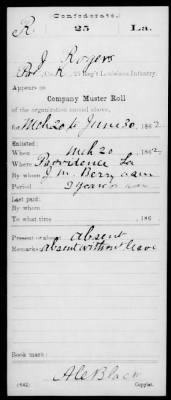 Confederate.
R 25 La.
J Rogers
Co. K, 25 Reg't Louisiana Infantry.
Appears on
Company Muster Roll
of the organization named above,
for Mch 20 to June 30, 1862
Enlisted:
When Mch 20, 1862.
Where Providence La
By whom J. M. Berry
Period 2 years
Last paid:
By whom
To what time , 186 .
Present or absent absent
Remarks: absent without leave
Book mark:
(642) Copyist.